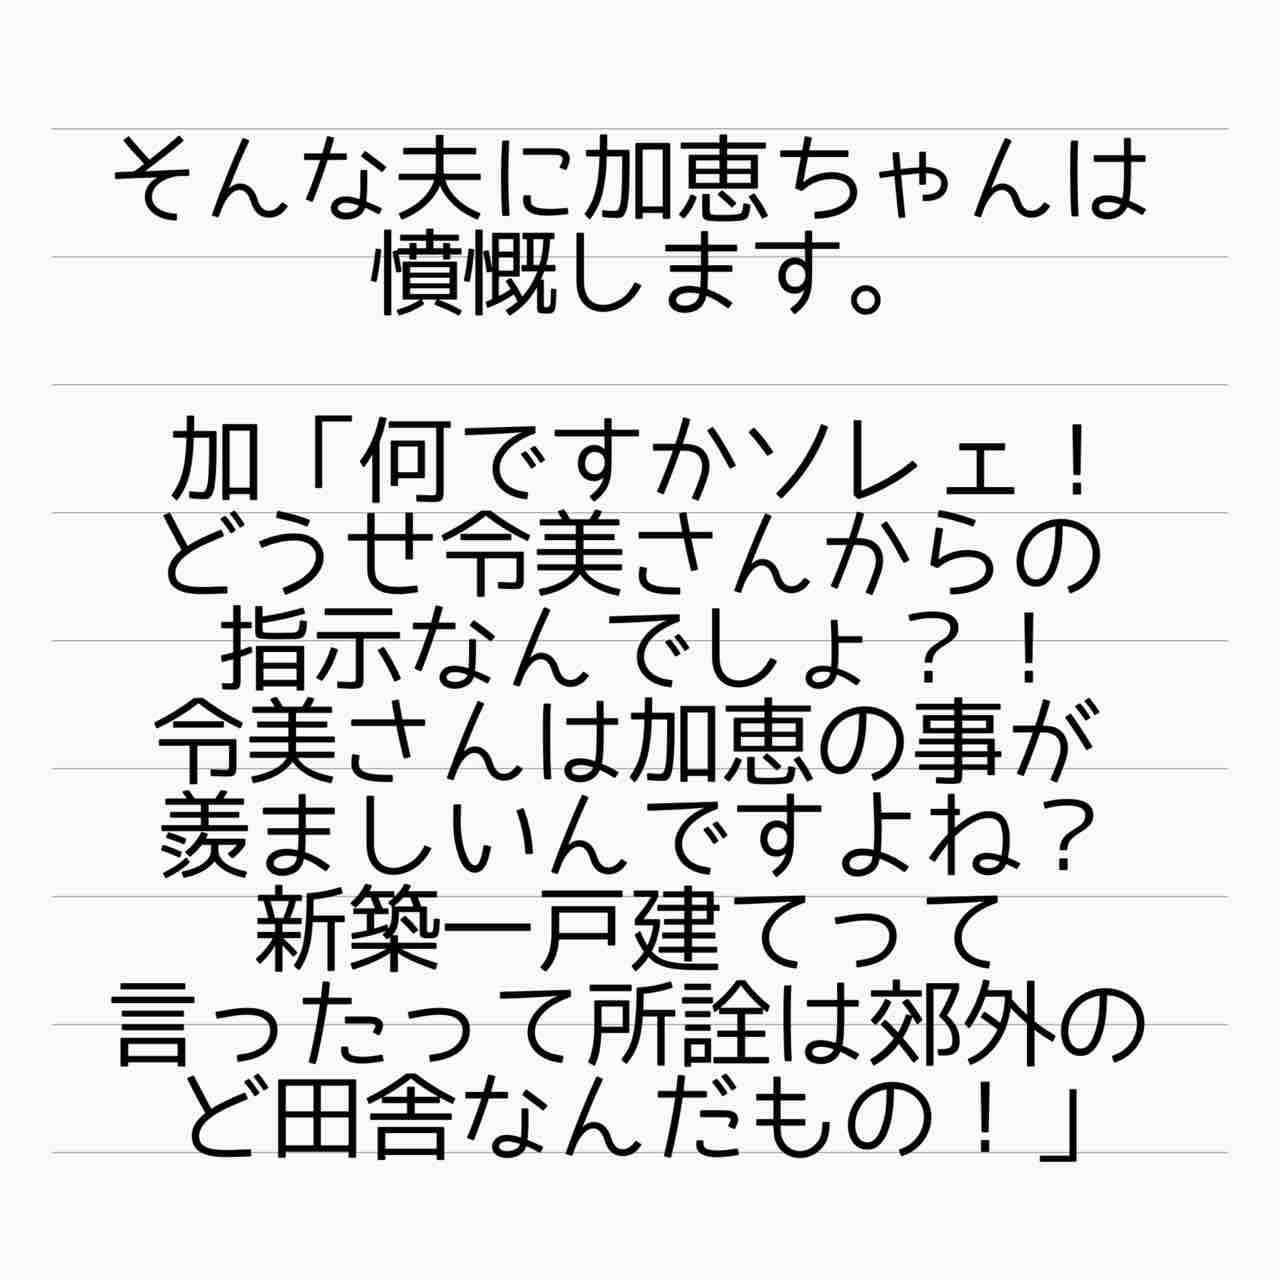 そんな夫に加恵ちゃんは
憤慨します。
加「何ですかソレェ！
どうせ令美さんからの
指示なんでしょ？！
令美さんは加恵の事が
羨ましいんですよね？
新築一戸建てって
言ったって所詮は郊外の
ど田舎なんだもの！」